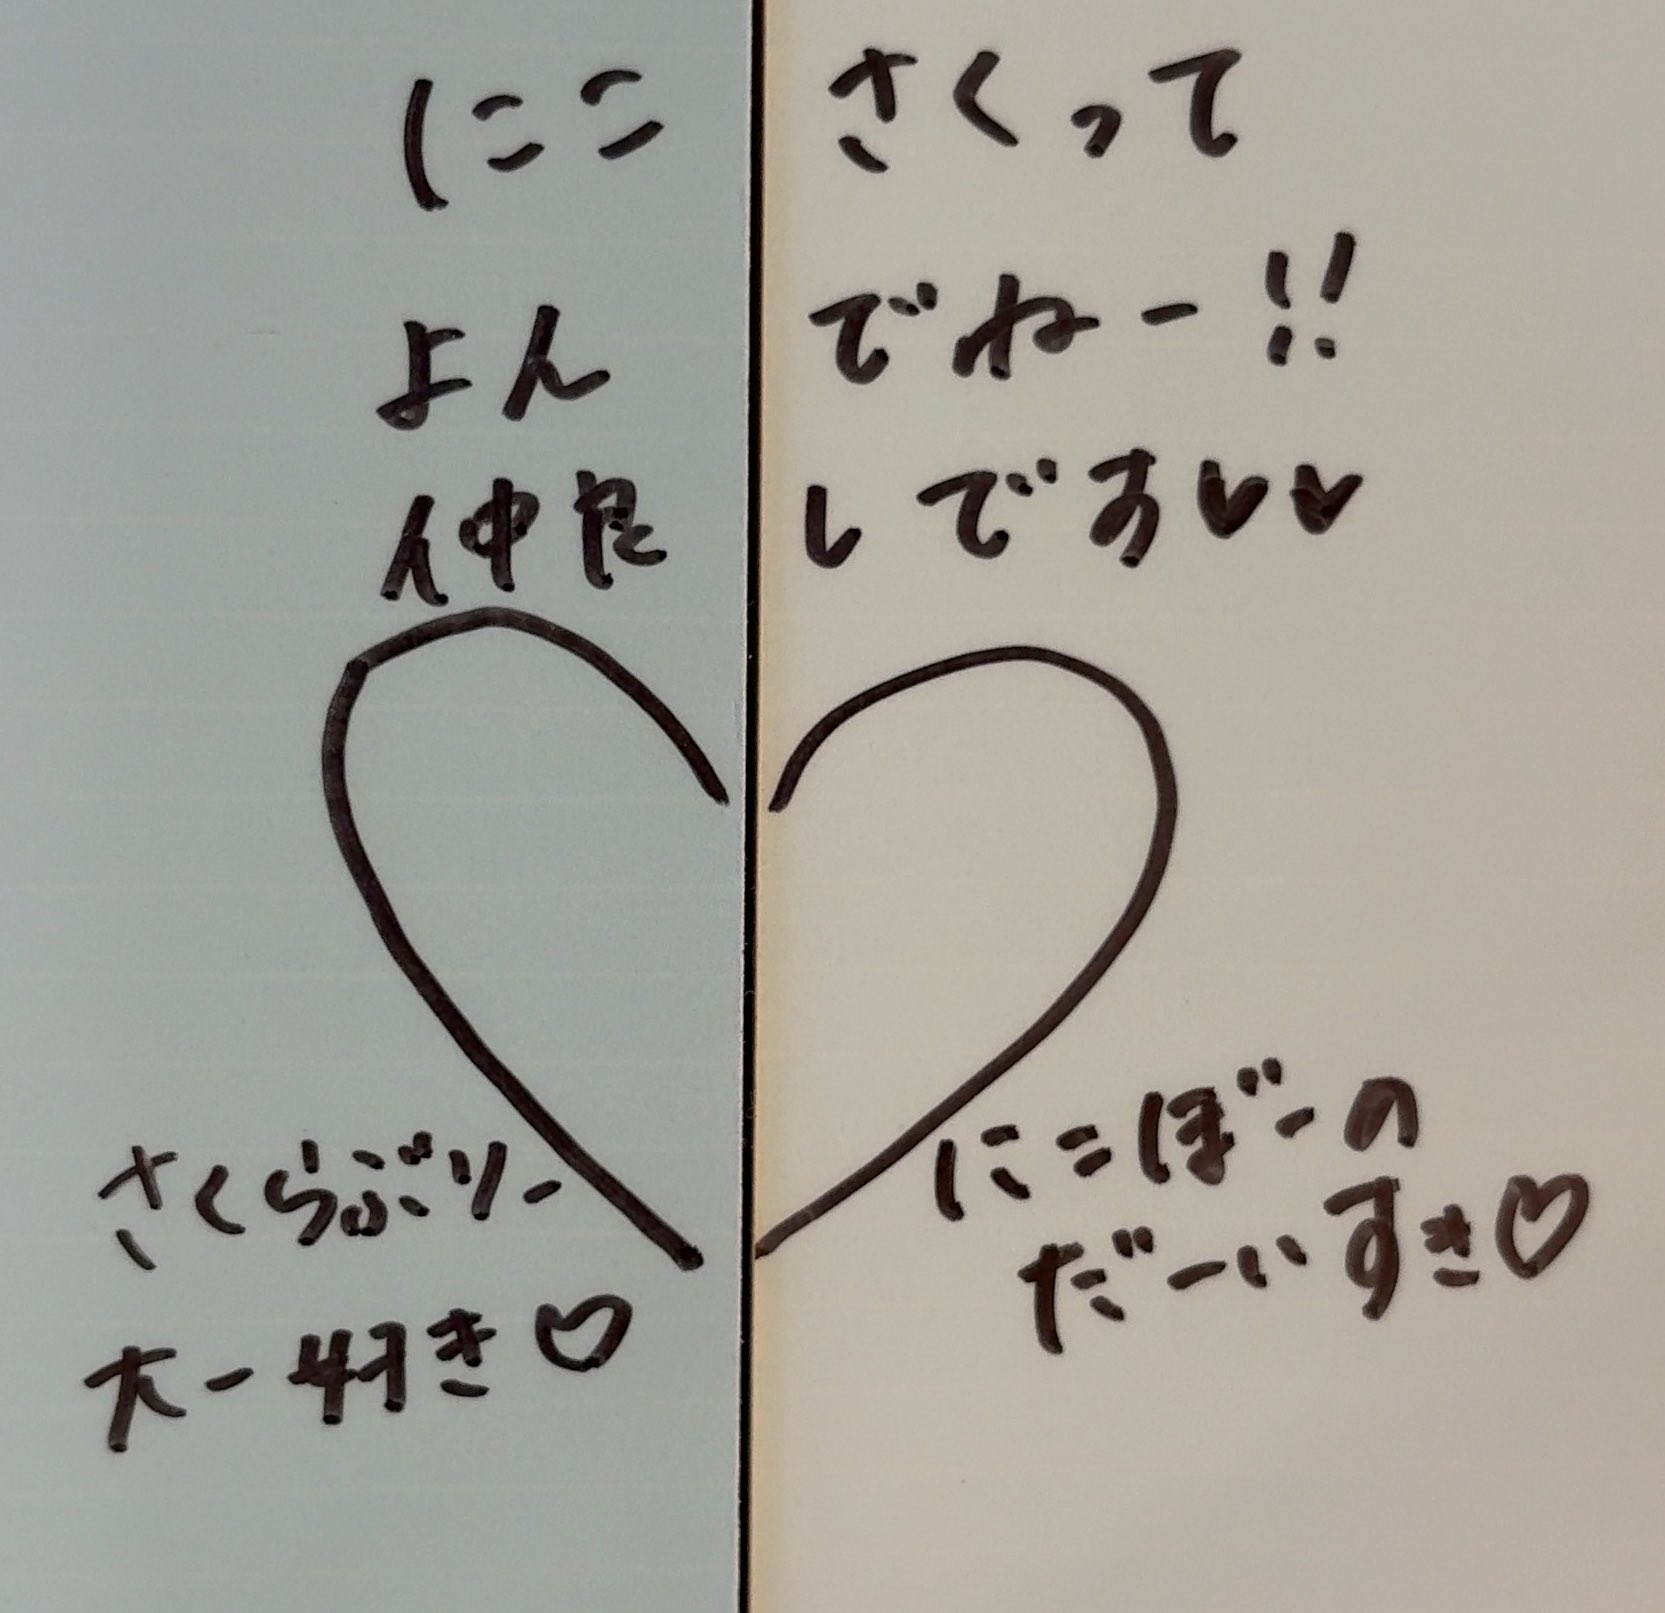 にこさくって
よんでねー!!
仲良しです♥♥
さくらぶりー
大ー好き♡
にこぼーの
だーいすき♡